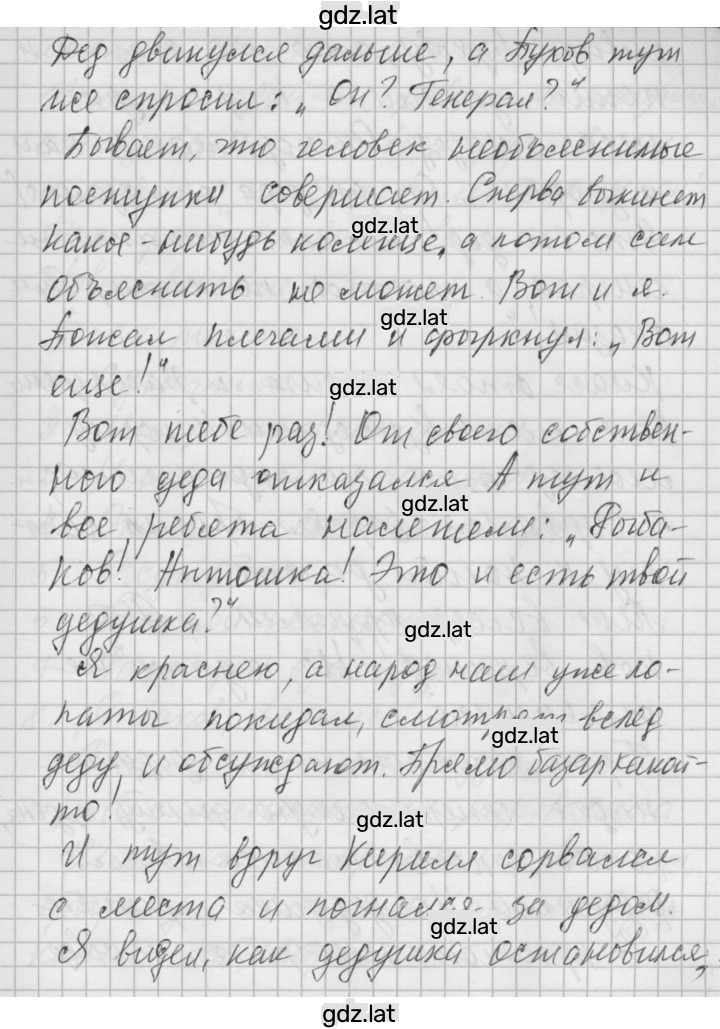 gdz.lat
Дед двинулся дальше, а Пухов тут
же спросил: „Он? Генерал?“
gdz.lat
Бывает, что человек необъяснимые
поступки совершает. Сперва выкинет
gdz.lat
какое-нибудь коленце, а потом сам
объяснить не может. Вот и я.
gdz.lat
Пожал плечами и фыркнул: „Вот
еще!“
gdz.lat
Вот тебе раз! От своего собствен-
ного деда отказался. А тут и
gdz.lat
все ребята налетели: „Рыба-
ков! Антошка! Это и есть твой
дедушка?“
gdz.lat
Я краснею, а народ наш уже ло-
паты покидал, смотрят вслед
gdz.lat
деду, и обсуждают. Прямо базар какой-
то!
gdz.lat
И тут вдруг Кирилл сорвался
с места и погнался за дедом.
gdz.lat
Я видел, как дедушка остановился,
gdz.lat